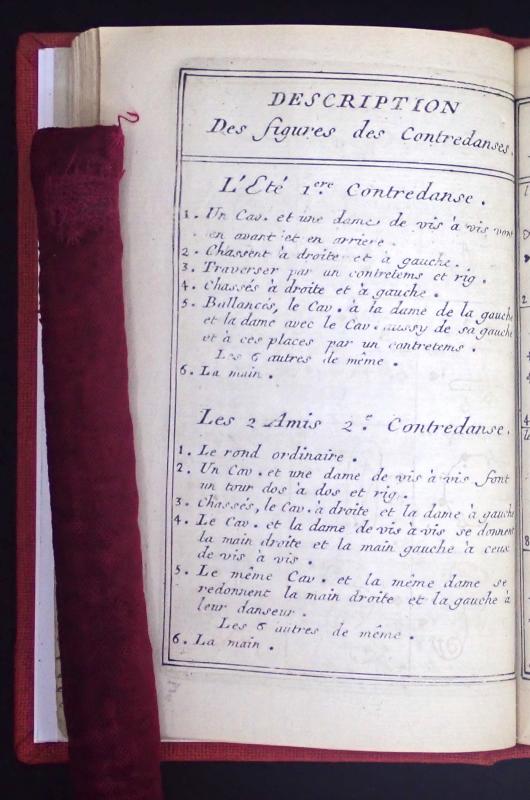 DESCRIPTION
Des figures des Contredanses.
L'Eté 1ere Contredanse.
1. Un Cav. et une dame de vis à vis vont
en avant et en arriere.
2. Chassent à droite et à gauche.
3. Traverser par un contretems et rig.
4. Chassés à droite et à gauche.
5. Ballancés, le Cav. à la dame de la gauche
et la dame avec le Cav. aussy de sa gauche
et à ces places par un contretems.
Les 6 autres de même.
6. La main.
Les 2 Amis 2e. Contredanse.
1. Le rond ordinaire.
2. Un Cav. et une dame de vis à vis font
un tour dos à dos et rig.
3. Chassés, le Cav. à droite et la dame à gauche
4. Le Cav. et la dame de vis à vis se donnent
la main droite et la main gauche à ceux
de vis à vis.
5. Le même Cav. et la même dame se
redonnent la main droite et la gauche à
leur danseur.
Les 6 autres de même.
6. La main.